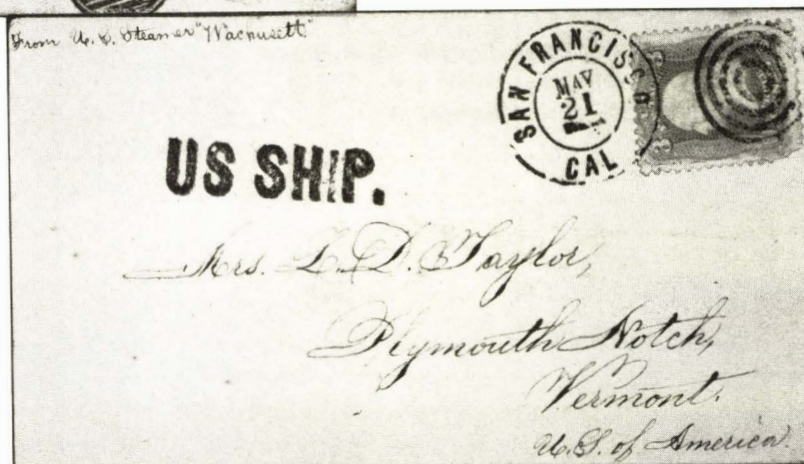 From U.S. Steamer "Wachusett"
SAN FRANCISCO
MAY
21
CAL
US SHIP.
Mrs. L. D. Taylor,
Plymouth Notch,
Vermont.
U.S. of America.
3 3